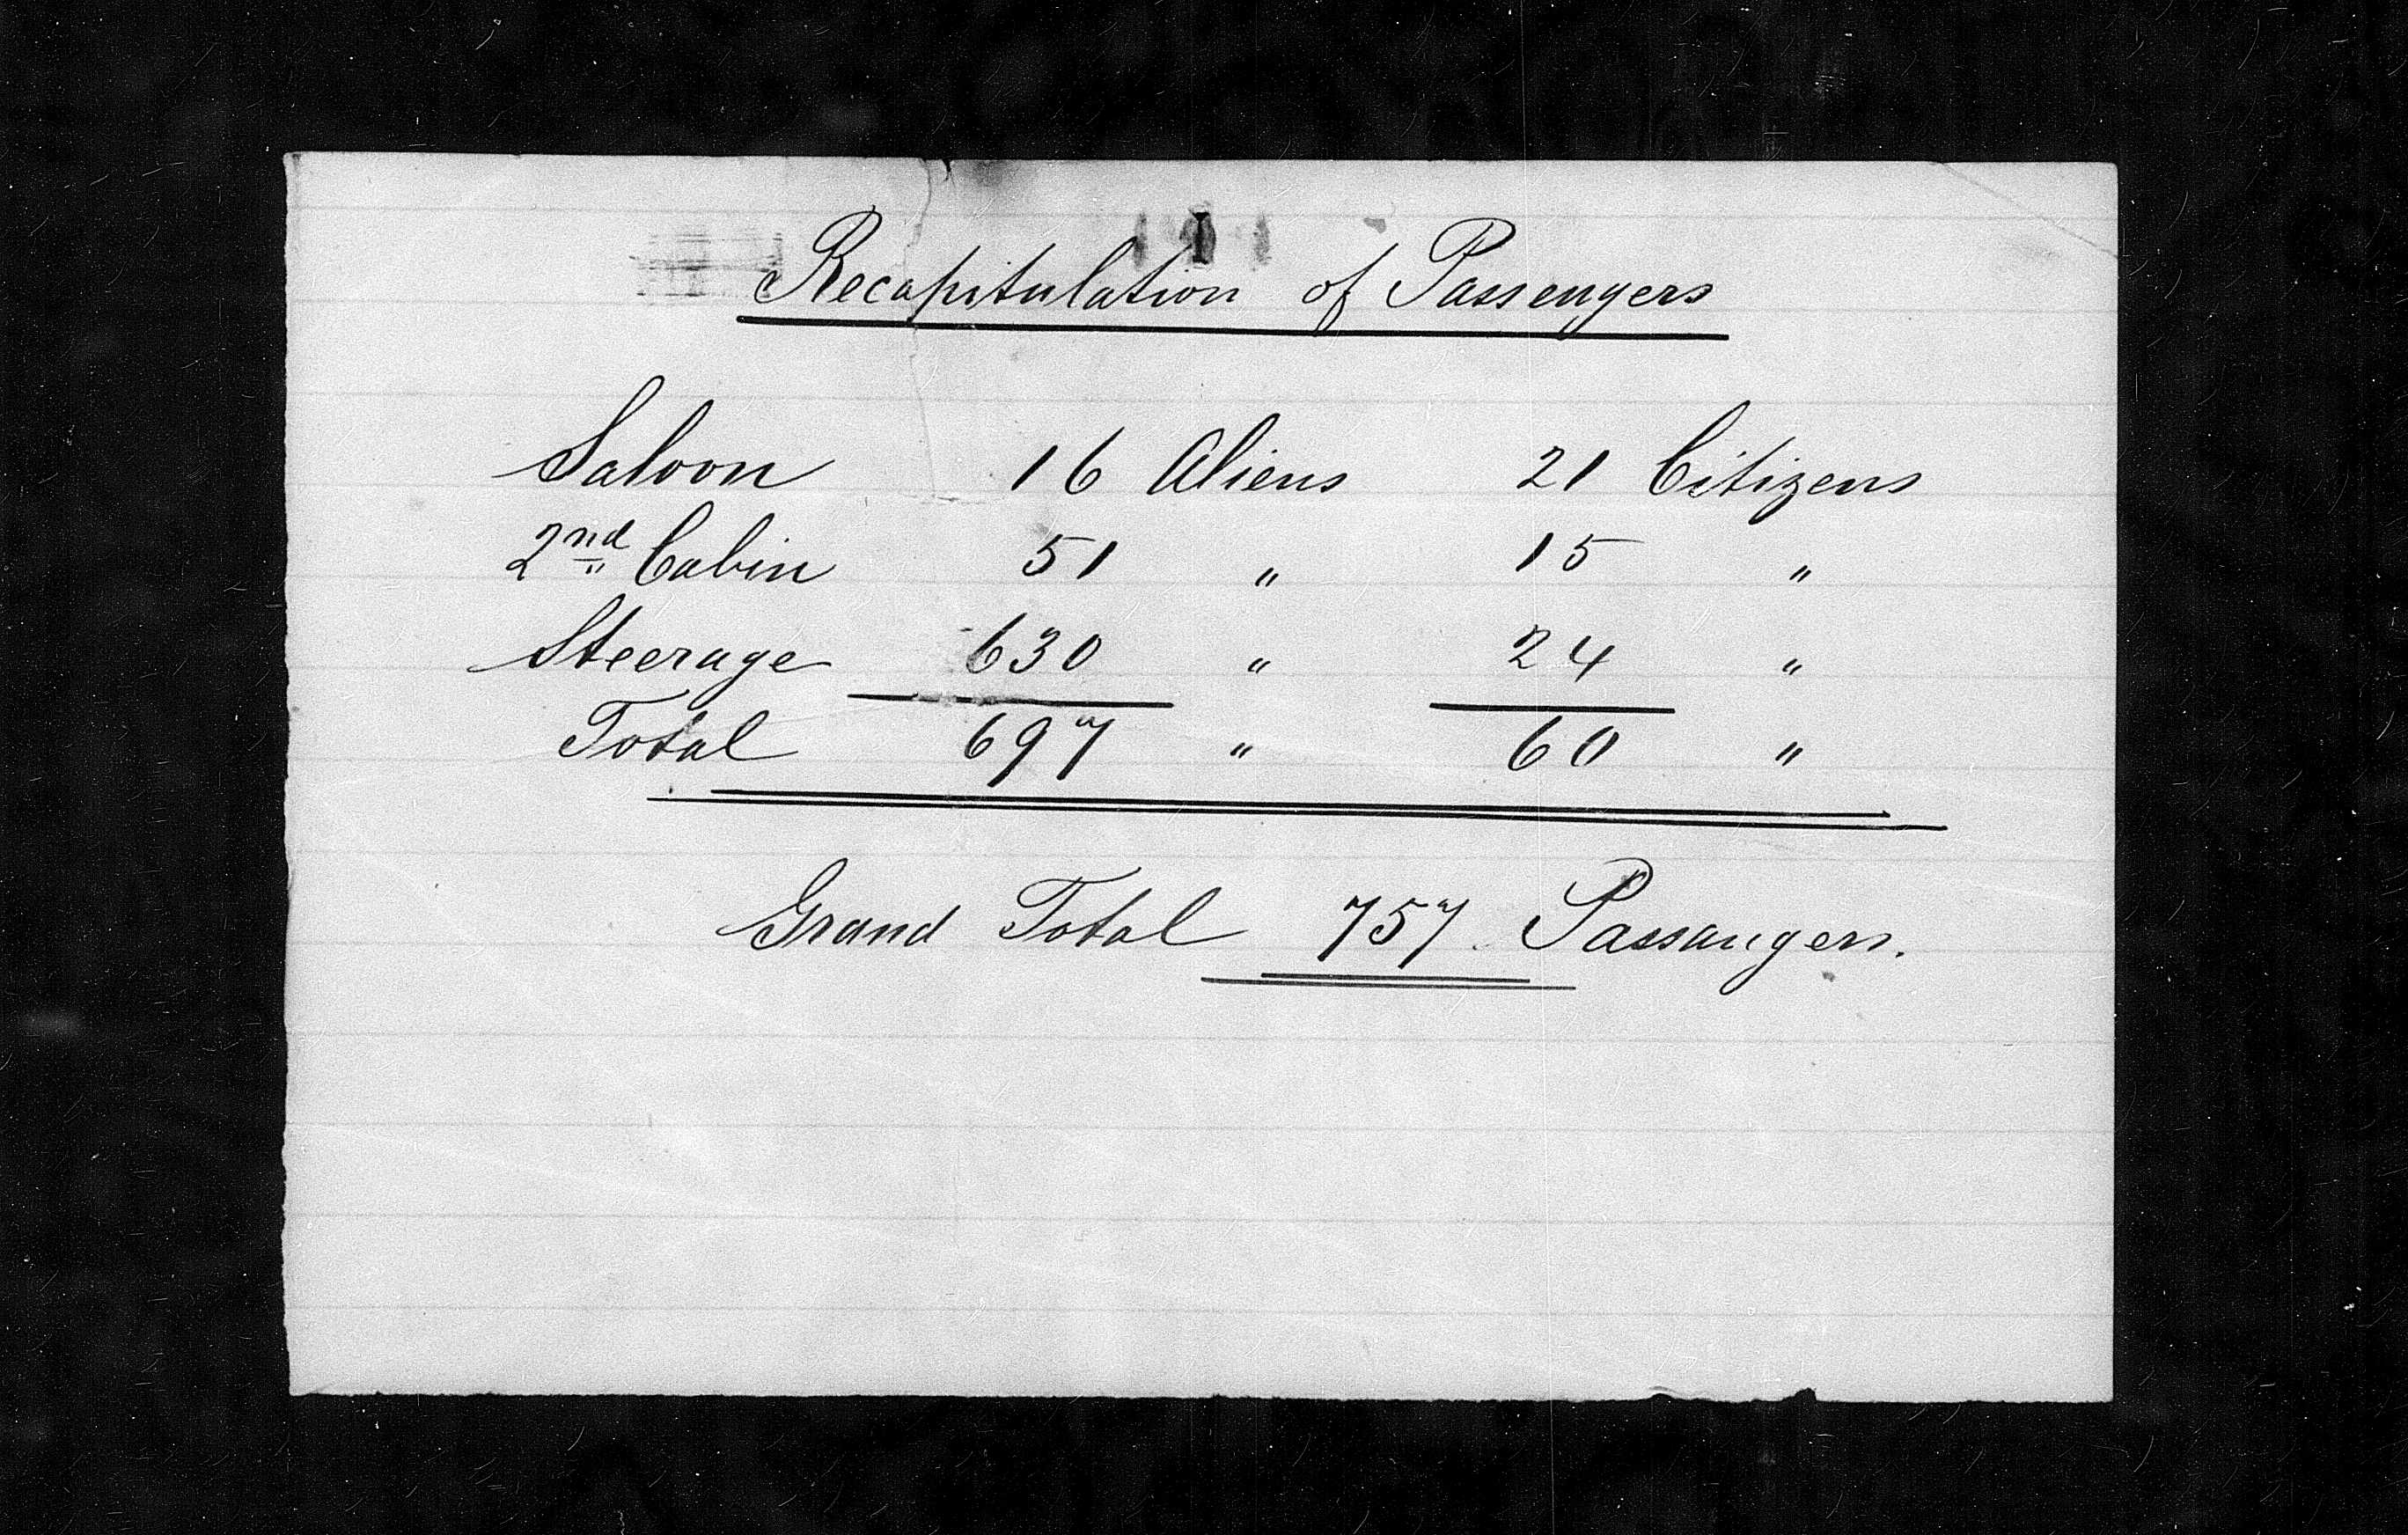 Recapitulation of Passengers
Saloon 16 Aliens 21 Citizens
2nd Cabin 51 " 15 "
Steerage 630 " 24 "
Total 697 " 60 "
Grand Total 757 Passangers.